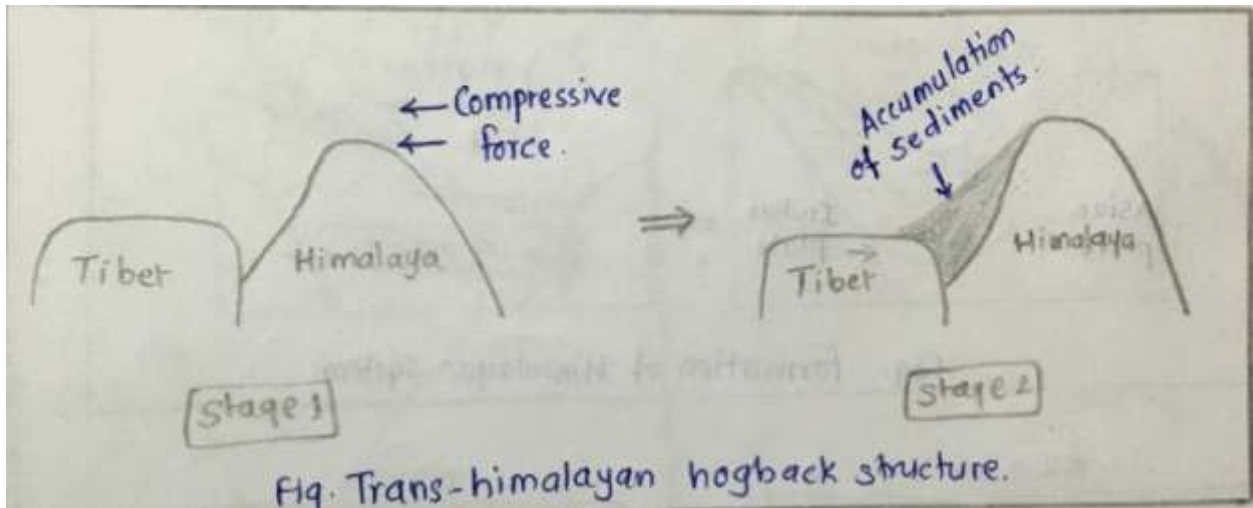 ← Compressive
← force.
Tibet
Himalaya
Stage 1
⇒
Accumulation
of sediments.
Tibet
Himalaya
Stage 2
Fig. Trans-himalayan hogback structure.